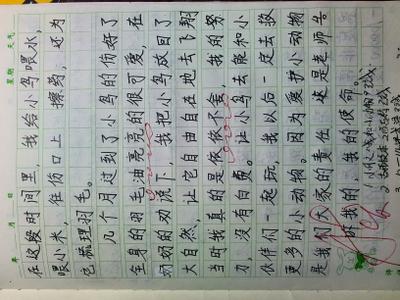 年 月 日 星期 天气
在这段时间里，我给小鸟喂水，
喂小米，在伤口上擦药，还为
它梳理羽毛。
几个月过到了小鸟的伤好了
全身的羽毛油亮亮的很可爱，在
奶奶的劝流下，我把小鸟放回了
大自然，让它自由自在地去飞翔
当时我真的是依依不舍我的努
力，没有白费。让小鸟去能和小
伙伴们一起玩，我以后一定去救
更多的小动物。因为爱护小动物
是我们大家的责任，这是老师告
诉我的，我的使命。